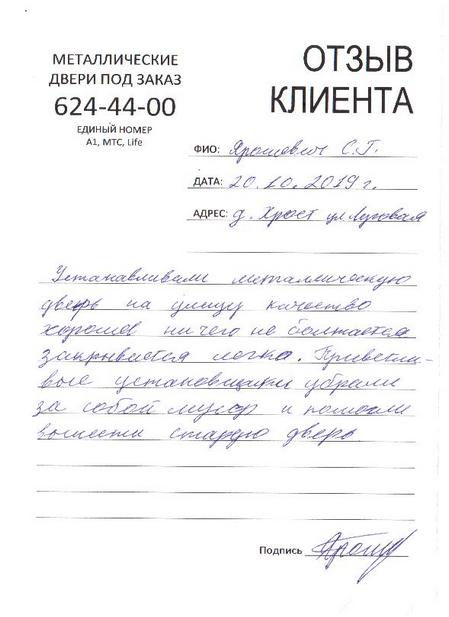 МЕТАЛЛИЧЕСКИЕ
ДВЕРИ ПОД ЗАКАЗ
624-44-00
ЕДИНЫЙ НОМЕР
А1, МТС, Life
ОТЗЫВ
КЛИЕНТА
ФИО: Ярошевич С.Г.
ДАТА: 20.10.2019 г.
АДРЕС: д. Хрост ул Луговая
Устанавливали металлическую
дверь на улицу качество
хорошее ничего не болтается
закрывается легко. Приветли-
вые установщики убрали
за собой мусор и помогли
вынести старую дверь
Подпись